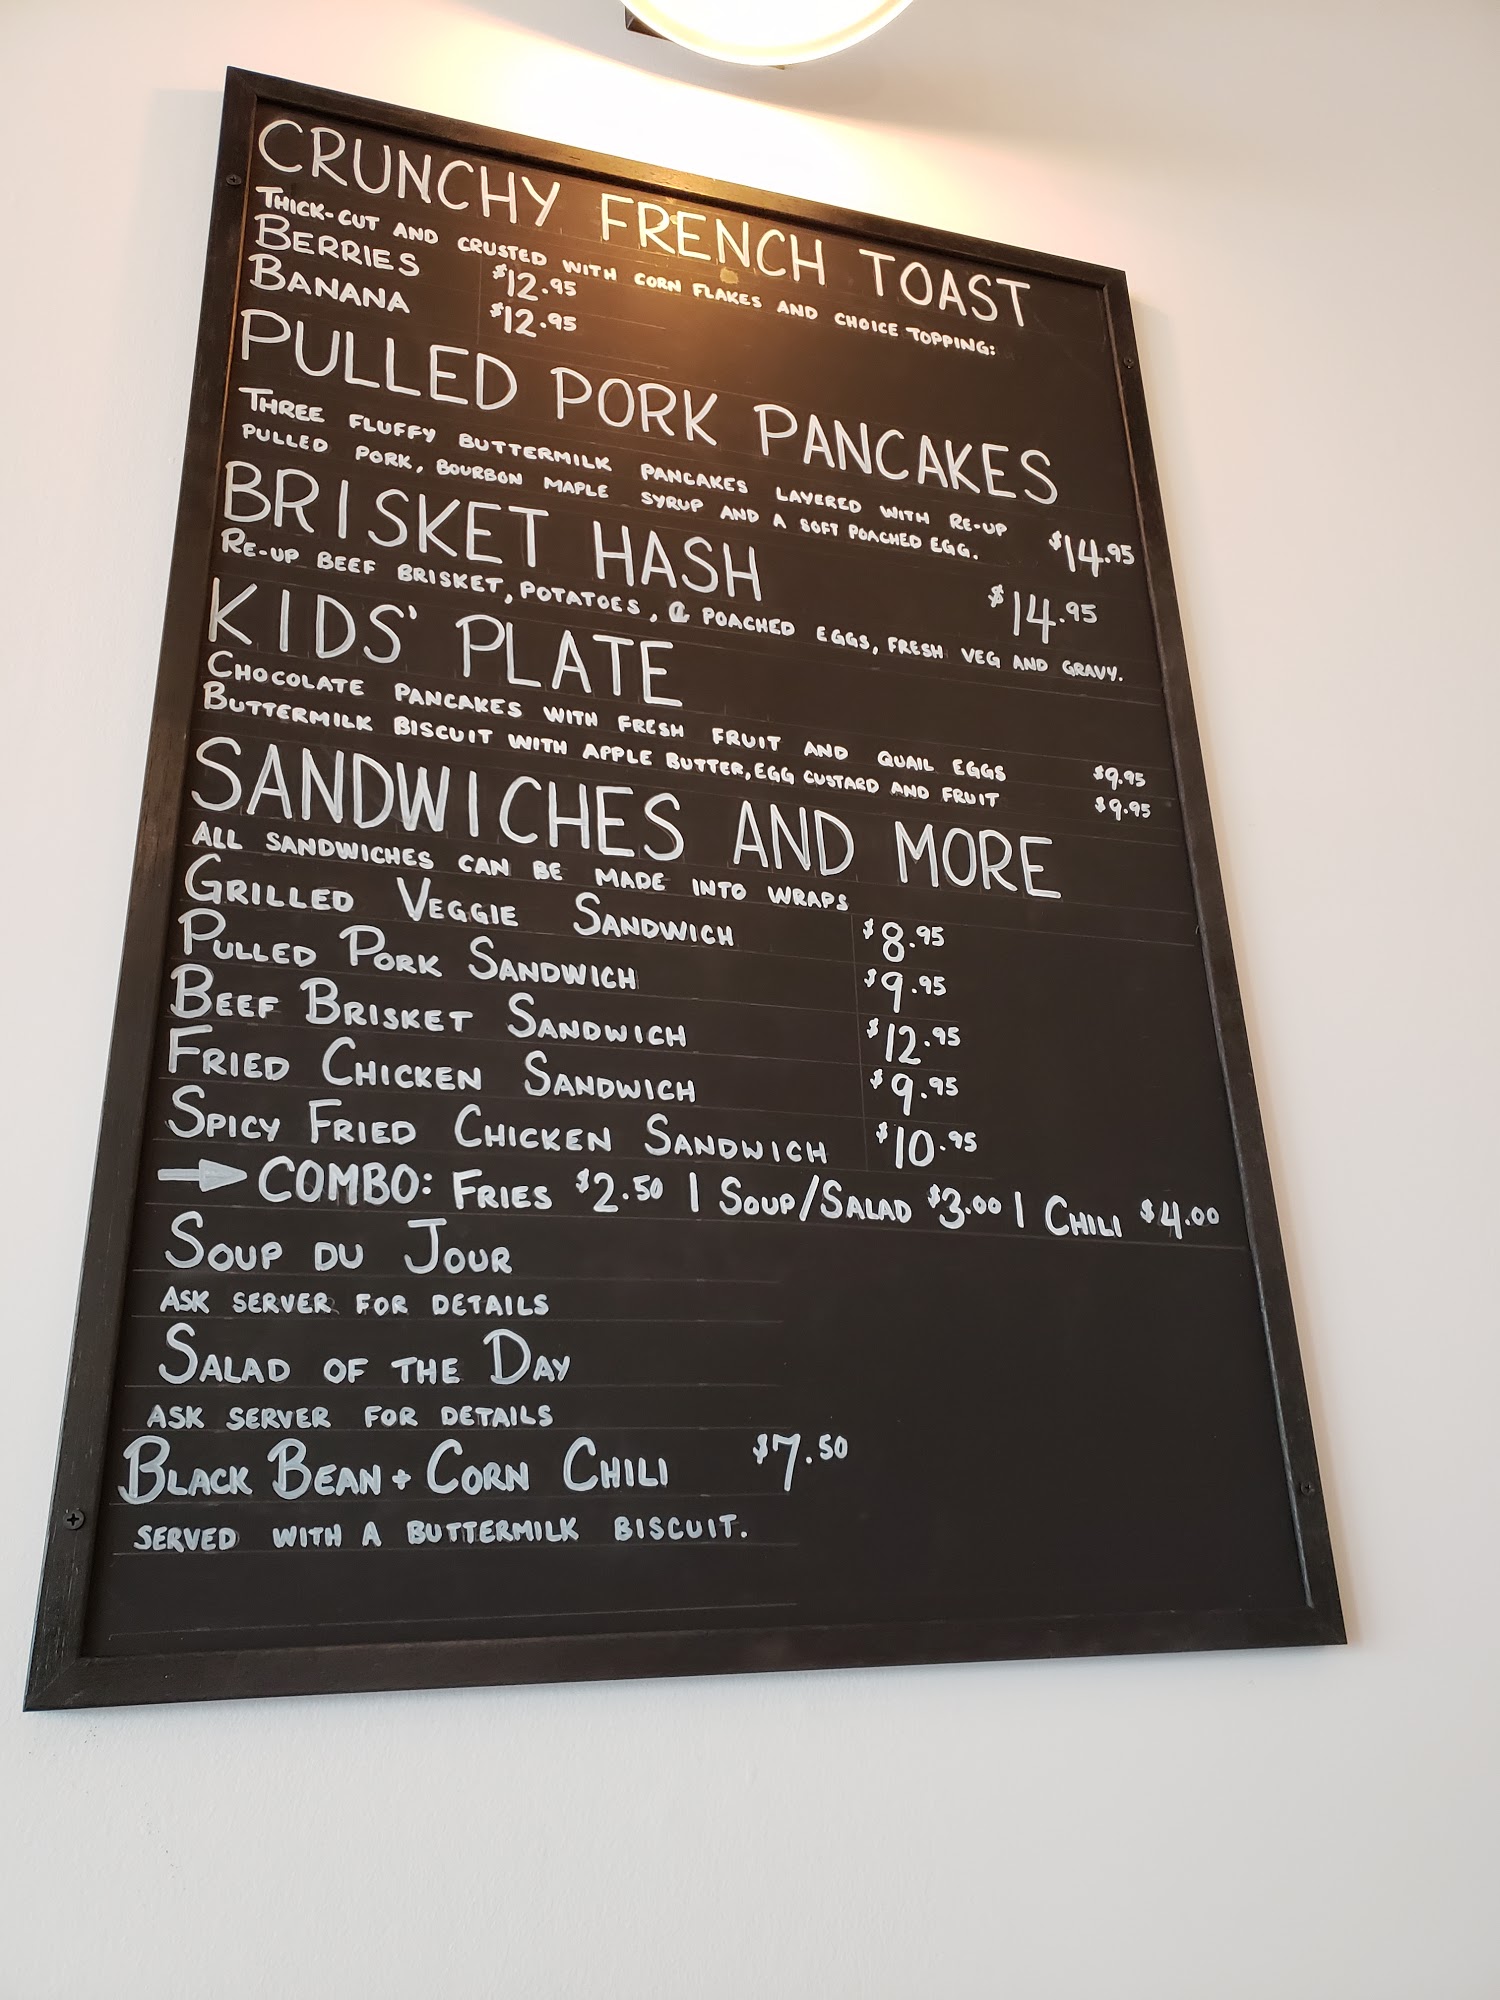 CRUNCHY FRENCH TOAST
THICK-CUT AND CRUSTED WITH CORN FLAKES AND CHOICE TOPPING:
BERRIES $12.95
BANANA $12.95
PULLED PORK PANCAKES
THREE FLUFFY BUTTERMILK PANCAKES LAYERED WITH RE-UP
PULLED PORK, BOURBON MAPLE SYRUP AND A SOFT POACHED EGG. $14.95
BRISKET HASH $14.95
RE-UP BEEF BRISKET, POTATOES, 2 POACHED EGGS, FRESH VEG AND GRAVY.
KIDS' PLATE
CHOCOLATE PANCAKES WITH FRESH FRUIT AND QUAIL EGGS $9.95
BUTTERMILK BISCUIT WITH APPLE BUTTER, EGG CUSTARD AND FRUIT $9.95
SANDWICHES AND MORE
ALL SANDWICHES CAN BE MADE INTO WRAPS
GRILLED VEGGIE SANDWICH $8.95
PULLED PORK SANDWICH $9.95
BEEF BRISKET SANDWICH $12.95
FRIED CHICKEN SANDWICH $9.95
SPICY FRIED CHICKEN SANDWICH $10.95
COMBO: FRIES $2.50 | SOUP/SALAD $3.00 | CHILI $4.00
SOUP DU JOUR
ASK SERVER FOR DETAILS
SALAD OF THE DAY
ASK SERVER FOR DETAILS
BLACK BEAN + CORN CHILI $7.50
SERVED WITH A BUTTERMILK BISCUIT.